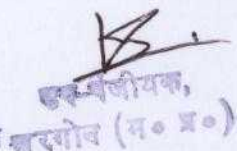 उप पंजीयक,
खरगोन (म० प्र०)